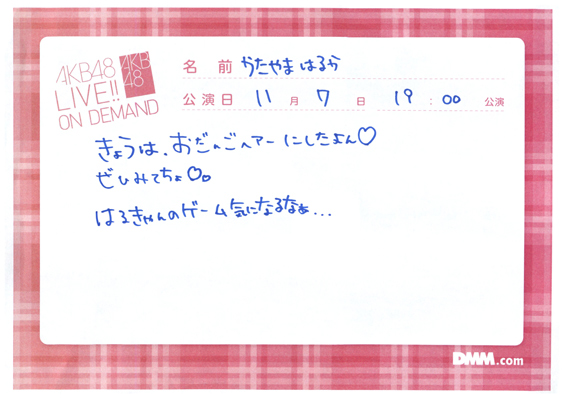 AKB48
LIVE!!
ON DEMAND
AKB
48
名 前 かたやま はるか
公演日 11 月 7 日 19 : 00 公演
きょうは、おだんごヘアーにしたよん♡
ぜひみてちょ♡。
はるきゃんのゲーム気になるなぁ...
DMM.com